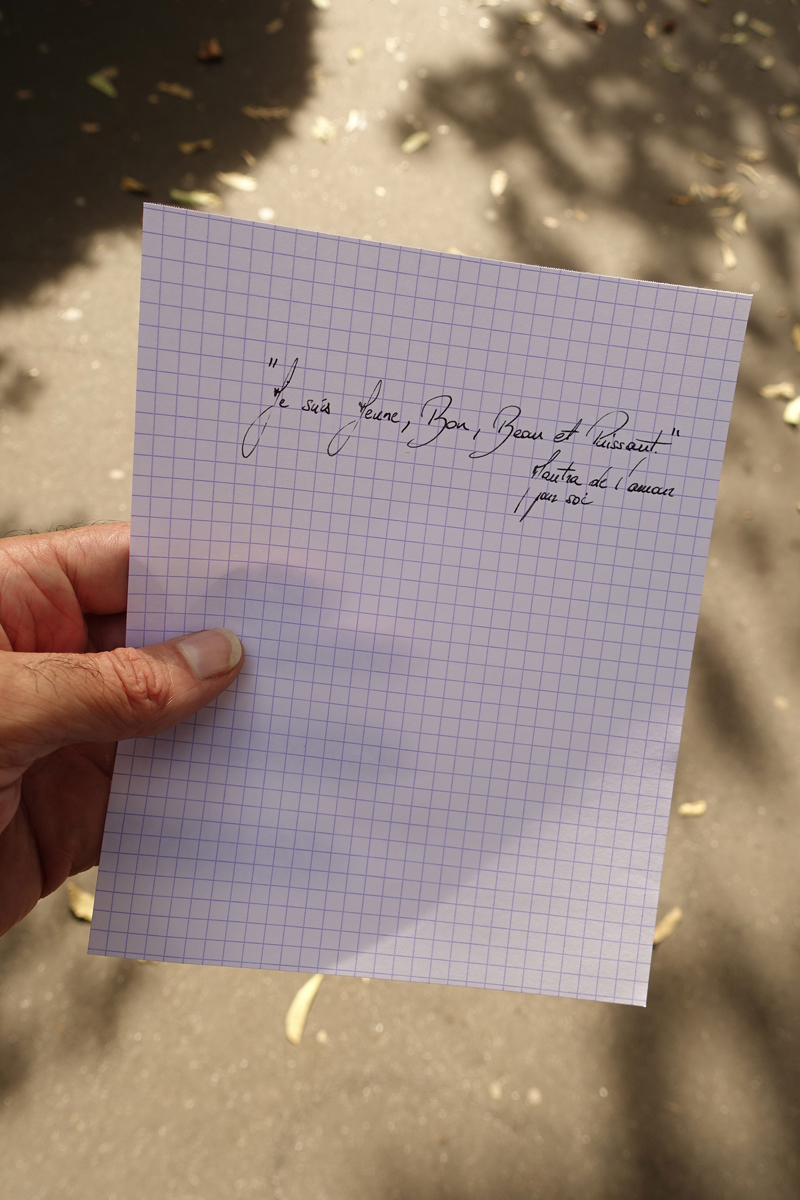 "Je suis Jeune, Bon, Beau et Puissant."
Mantra de l'amour
pour soi